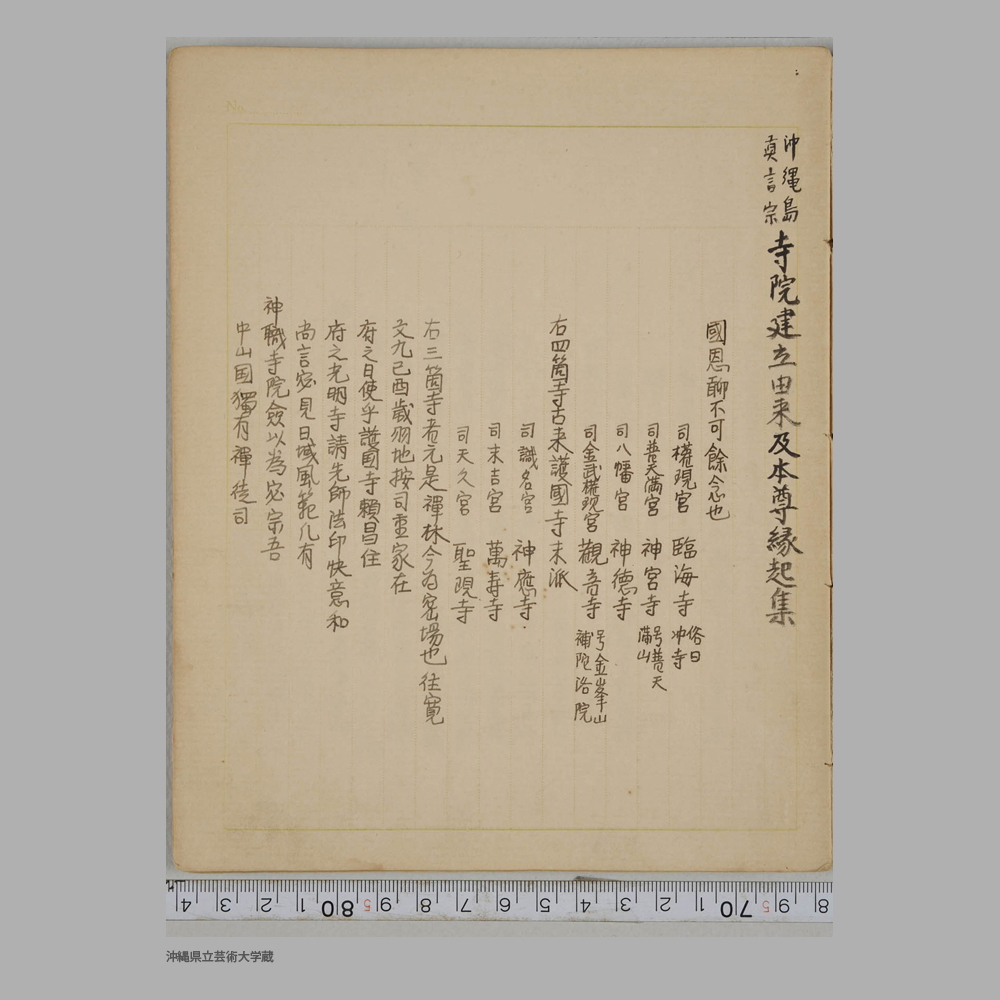 沖縄島
眞言宗
寺院建立由来及本尊縁起集
國恩聊不可餘念也
司権現宮 臨海寺 俗曰沖寺
司普天満宮 神宮寺 号普天満山
司八幡宮 神徳寺
司金武権現宮 觀音寺 号金峯山補陀洛院
右四箇寺古来護國寺末派
司識名宮 神應寺
司末吉宮 萬壽寺
司天久宮 聖現寺
右三箇寺者元是禪林今為密場也往寛
文九己酉歳羽地按司重家在
府之日使乎護国寺頼昌住
府之光明寺請先師法印快意和
尚言宓見日域風範凡有
神職寺院僉以為宓宗吾
中山国獨有禪徒司
No.
4 3 2 1 80 9 8 7 6 5 4 3 2 1 70 9 8
沖縄県立芸術大学蔵